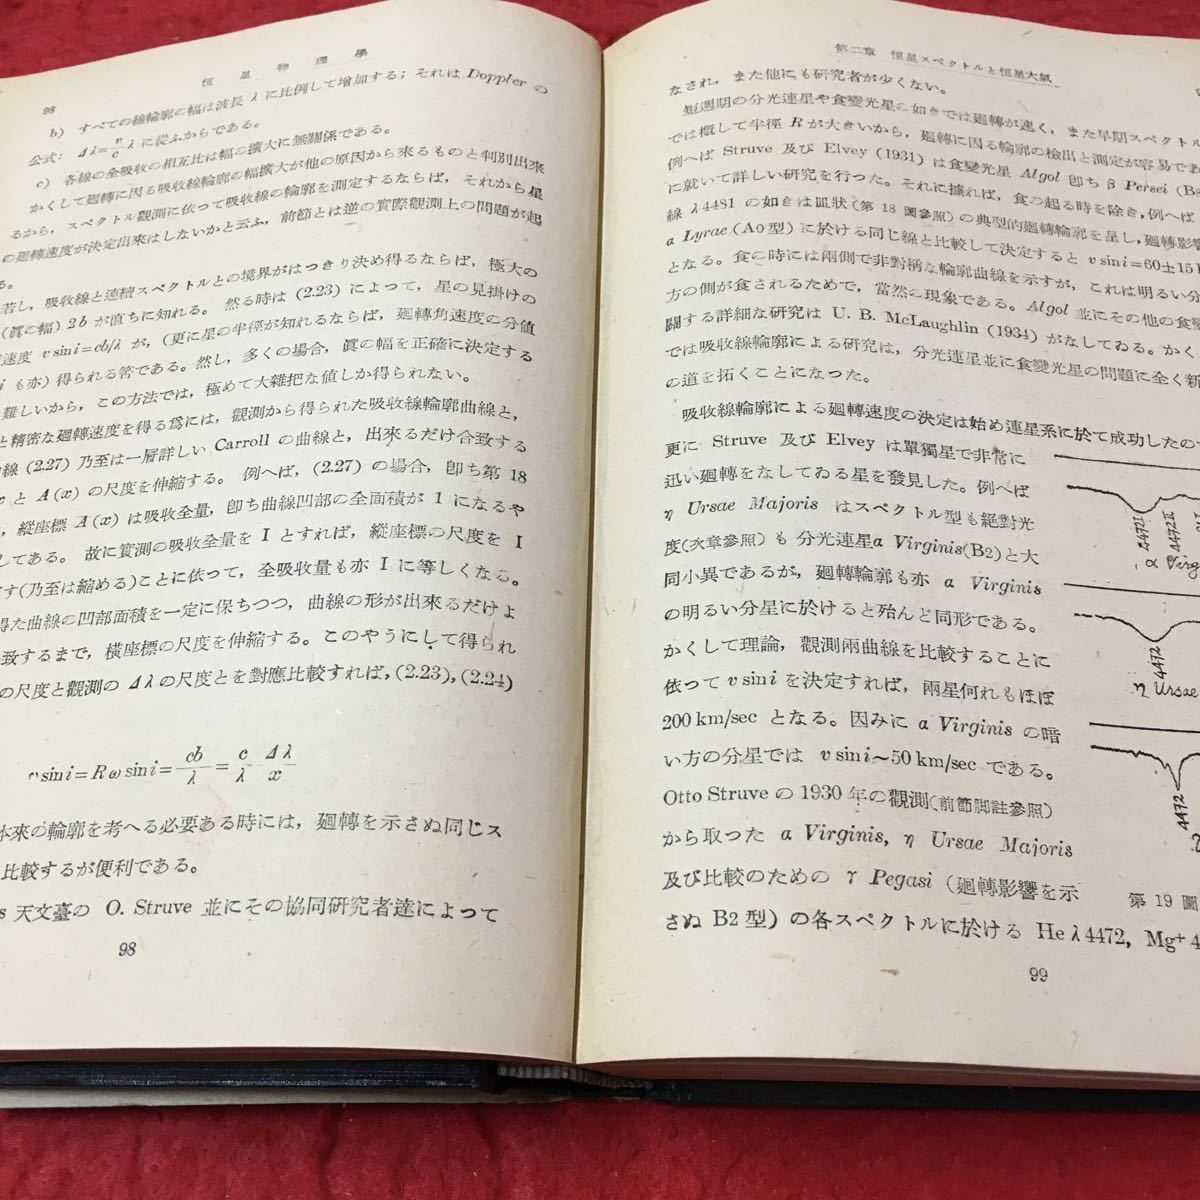 恒星物理學
98
b) すべての線輪廓の幅は波長 λ に比例して増加する；それは Doppler の
公式: Δλ=v/c λ に從ふからである。
c) 各線の全吸收の相互比は幅の擴大に無關係である。
かくして廻轉に因る吸收線輪廓の幅擴大が他の原因から來るものと判別出來
るから，スペクトル觀測に依つて吸收線の輪廓を測定するならば，それから星
の廻轉速度が決定出來はしないかと云ふ，前節とは逆の實際觀測上の問題が起
る。
若し，吸收線と連續スペクトルとの境界がはつきり決め得るならば，極大の
(眞の幅) 2b が直ちに知れる。 然る時は (2.23) によつて，星の見掛けの
速度 v sin i=cb/λ が，(更に星の半徑が知れるならば，廻轉角速度の分値
i も亦) 得られる筈である。然し，多くの場合，眞の幅を正確に決定する
難しいから，この方法では，極めて大雜把な値しか得られない。
と精密な廻轉速度を得る爲には，觀測から得られた吸收線輪廓曲線と，
線 (2.27) 乃至は一層詳しい Carroll の曲線と，出來るだけ合致する
x と A(x) の尺度を伸縮する。 例へば，(2.27) の場合，卽ち第 18
，縱座標 A(x) は吸收全量，卽ち曲線凹部の全面積が 1 になるや
してある。 故に實測の吸收全量を I とすれば，縱座標の尺度を I
す(乃至は縮める)ことに依つて，全吸收量も亦 I に等しくなる。
得た曲線の凹部面積を一定に保ちつつ，曲線の形が出來るだけよ
致するまで，橫座標の尺度を伸縮する。このやうにして得られ
の尺度と觀測の Δλ の尺度とを對應比較すれば，(2.23)，(2.24)
v sin i=Rω sin i=cb/λ=c/λ Δλ/x
本來の輪廓を考へる必要ある時には，廻轉を示さぬ同じス
比較するが便利である。
s 天文臺の O. Struve 並にその協同研究者達によつて
98
第二章 恒星スペクトルと恒星大氣
なされ，また他にも研究者が少くない。
短週期の分光連星や食變光星の如きでは廻轉が速く，また早期スペクトル
では概して半徑 R が大きいから，廻轉に因る輪廓の檢出と測定が容易であ
例へば Struve 及び Elvey (1931) は食變光星 Algol 卽ち β Persei (B8
に就いて詳しい研究を行つた。それに據れば，食の起る時を除き，例へば
線 λ4481 の如きは皿狀(第 18 圖參照) の典型的廻轉輪廓を呈し，廻轉影響
α Lyrae (A0 型) に於ける同じ線と比較して決定すると v sin i=60±15
となる。食の時には兩側で非對稱な輪廓曲線を示すが，これは明るい分
方の側が食されるためで，當然の現象である。Algol 並にその他の食變
關する詳細な研究は U. B. McLaughlin (1934) がなしてゐる。かく
では吸收線輪廓による研究は，分光連星並に食變光星の問題に全く新
の道を拓くことになつた。
吸收線輪廓による廻轉速度の決定は始め連星系に於て成功したので
更に Struve 及び Elvey は單獨星で非常に
迅い廻轉をなしてゐる星を發見した。例へば
η Ursae Majoris はスペクトル型も絕對光
度(次章參照) も 分光連星α Virginis(B2)と大
同小異であるが，廻轉輪廓も亦 α Virginis
の明るい分星に於けると殆んど同形である。
かくして理論，觀測兩曲線を比較することに
依つて v sin i を決定すれば，兩星何れもほぼ
200 km/sec となる。因みに α Virginis の暗
い方の分星では v sin i～50 km/sec である。
Otto Struve の 1930 年の觀測(前節脚註參照)
から取つた α Virginis, η Ursae Majoris
及び比較のための γ Pegasi (廻轉影響を示
さぬ B2 型) の各スペクトルに於ける He λ4472, Mg⁺ 4
4472I
4472II
α Virg
4472
η Ursae
4472
第 19 圖
99